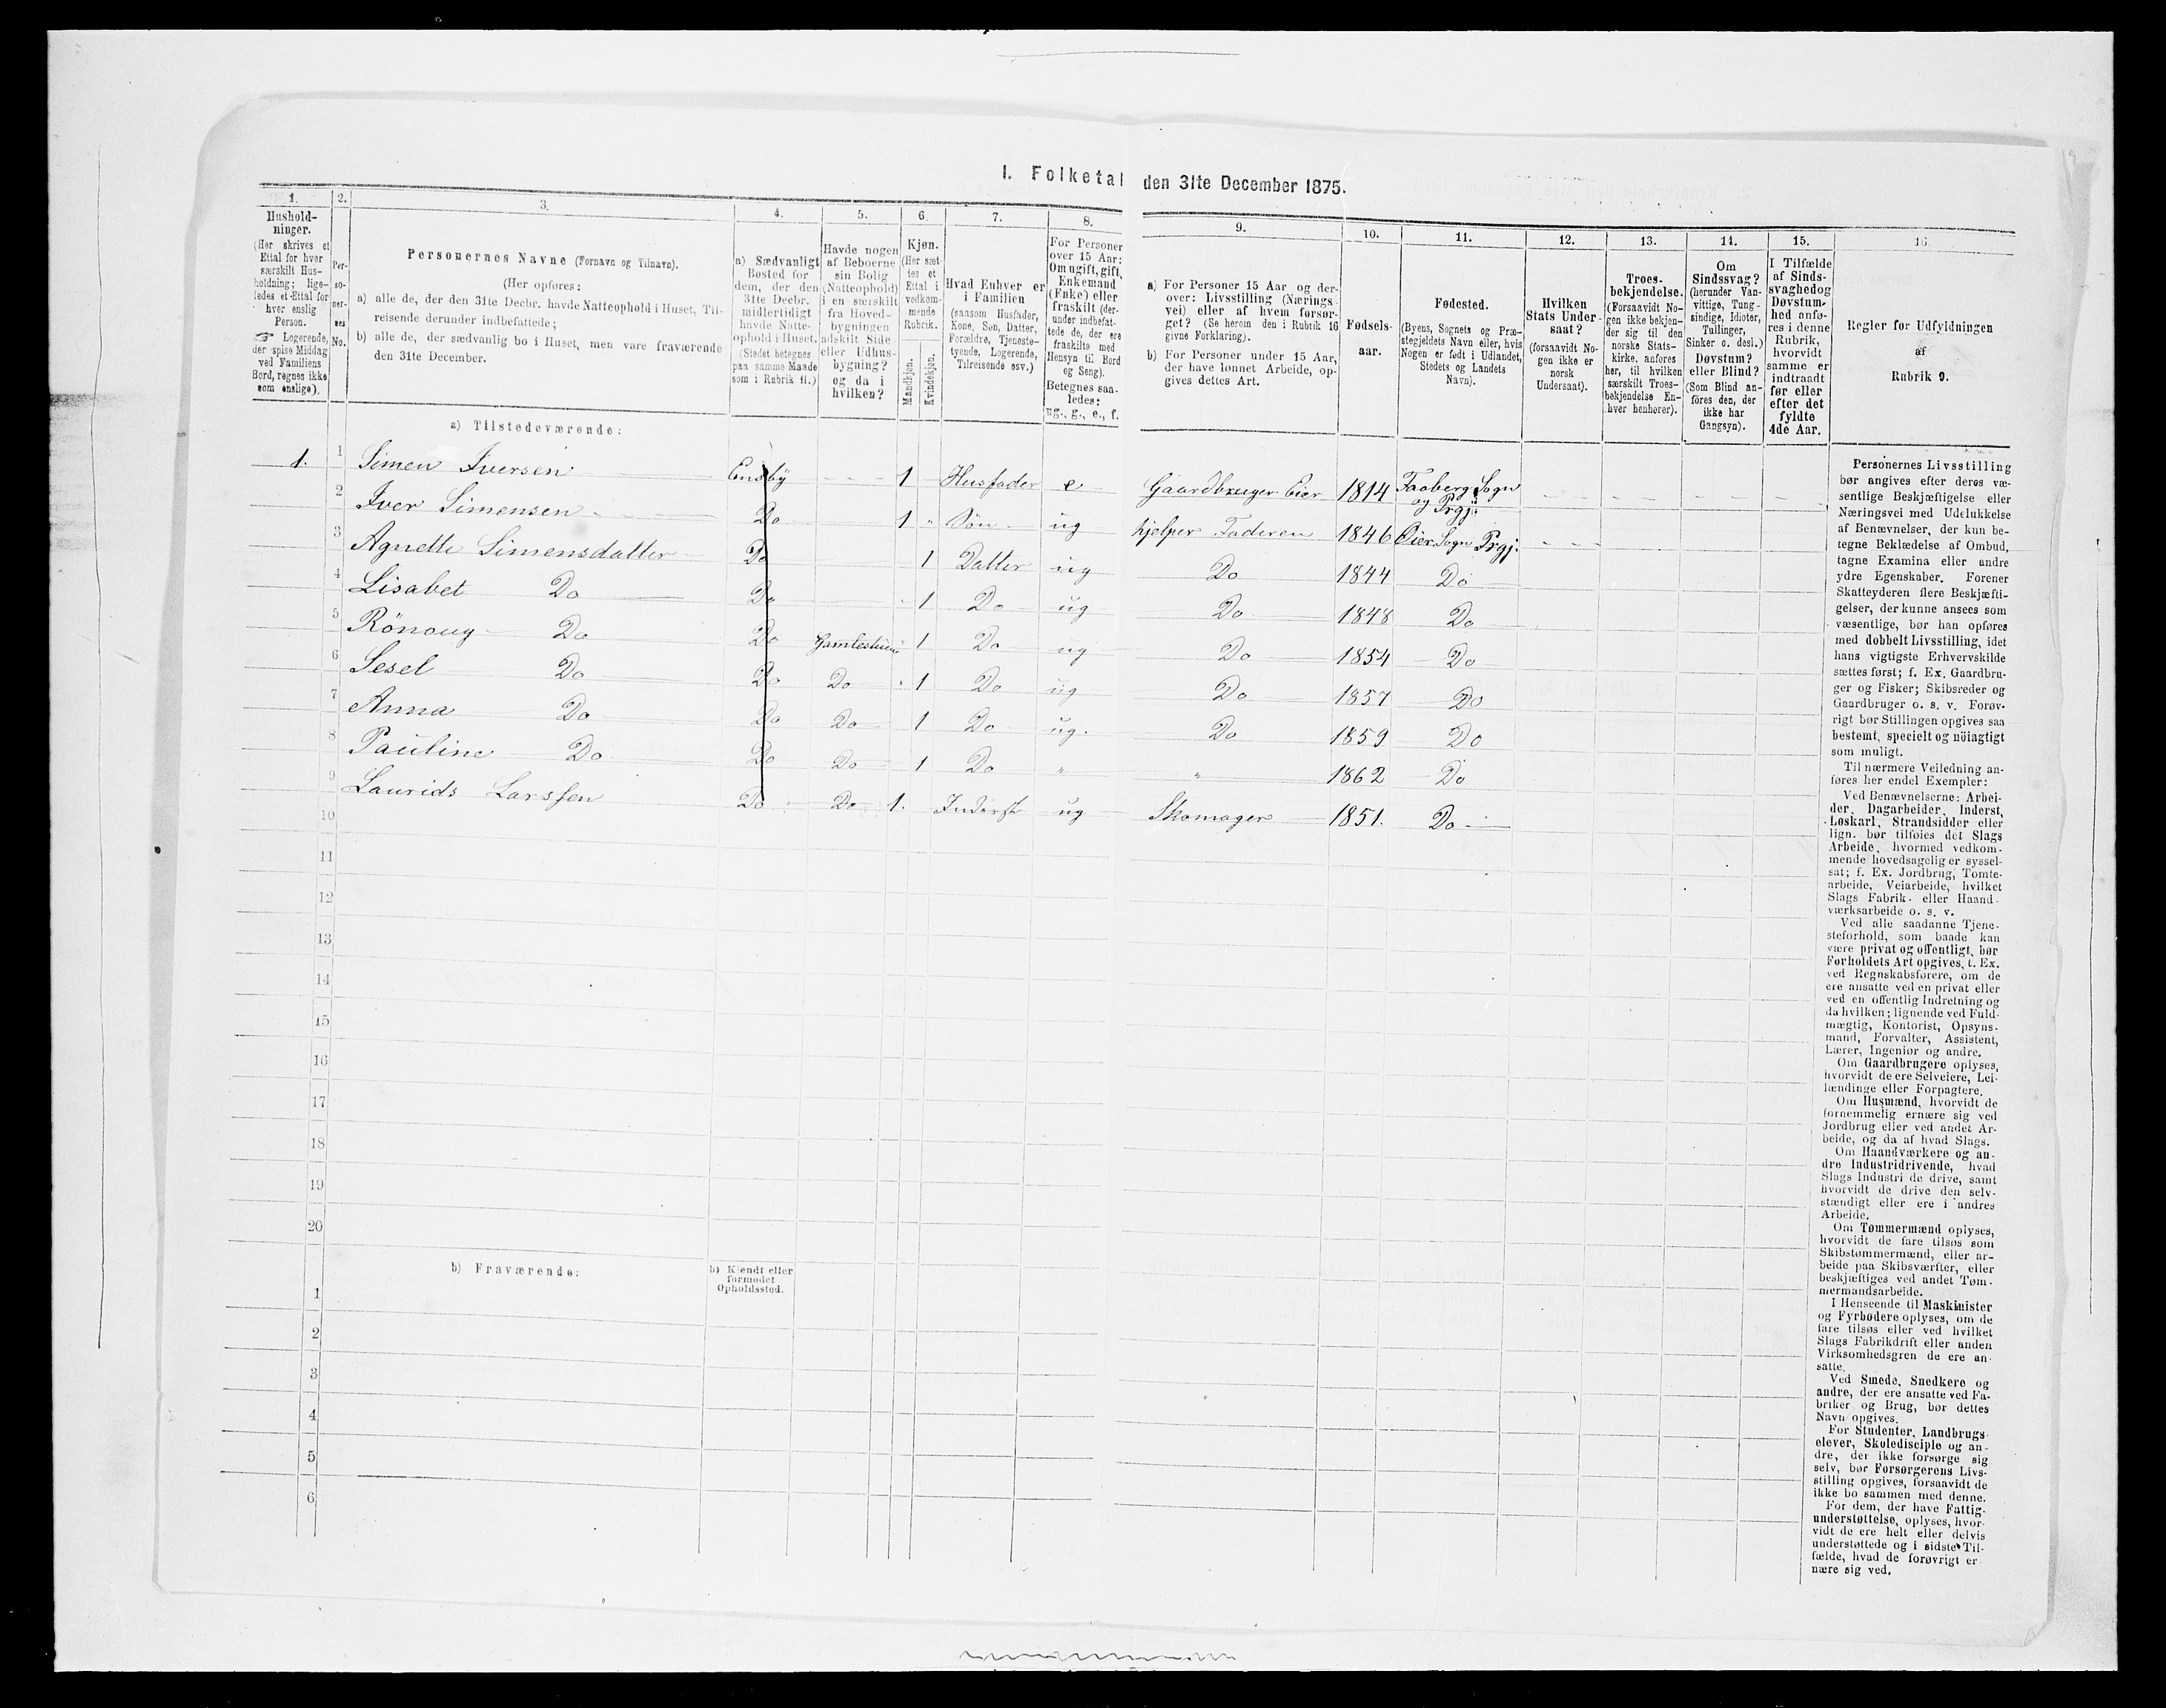 I. Folketal den 31te December 1875.
1.
Hushold-
ninger.
(Her skrives et
Ettal for hver
særskilt Hus-
holdning; lige-
ledes et Ettal for
hver enslig
Person.
☞ Logerende,
der spise Middag
ved Familiens
Bord, regnes ikke
som enslige).
2.
Per-
so-
ner-
nes
No.
3.
Personernes Navne (Fornavn og Tilnavn).
(Her opføres:
a) alle de, der den 31te Decbr. havde Natteophold i Huset, Til-
reisende derunder indbefattede;
b) alle de, der sædvanlig bo i Huset, men vare fraværende
den 31te December.
4.
a) Sædvanligt
Bosted for
dem, der den
31te Decbr.
midlertidigt
havde Natte-
ophold i Huset.
(Stedet betegnes
paa samme Maade
som i Rubrik 11.)
5.
Havde nogen
af Beboerne
sin Bolig
(Natteophold)
i en særskilt
fra Hoved-
bygningen
adskilt Side-
eller Udhus-
bygning?
og da i
hvilken?
6.
Kjøn.
(Her sæt-
tes et
Ettal i
vedkom-
mende
Rubrik.
Mandkjøn.
Kvindekjøn.
7.
Hvad Enhver er
i Familien
(saasom Husfader,
Kone, Søn, Datter,
Forældre, Tjeneste-
tyende, Logerende,
Tilreisende osv.)
8.
For Personer
over 15 Aar:
Om ugift, gift,
Enkemand
(Enke) eller
fraskilt (der-
under indbefat-
tede de, der ere
fraskilte med
Hensyn til Bord
og Seng).
Betegnes saa-
ledes:
ug., g., e., f.
9.
a) For Personer 15 Aar og der-
over: Livsstilling (Nærings-
vei) eller af hvem forsør-
get? (Se herom den i Rubrik 16
givne Forklaring).
b) For Personer under 15 Aar,
der have lønnet Arbeide, op-
gives dettes Art.
10.
Fødsels-
aar.
11.
Fødested.
(Byens, Sognets og Præ-
stegjeldets Navn eller, hvis
Nogen er født i Udlandet,
Stedets og Landets
Navn).
12.
Hvilken
Stats Under-
saat?
(forsaavidt No-
gen ikke er
norsk
Undersaat).
13.
Troes-
bekjendelse.
(Forsaavidt No-
gen ikke bekjen-
der sig til den
norske Stats-
kirke, anføres
her, til hvilken
særskilt Troes-
bekjendelse En-
hver henhører).
14.
Om
Sindssvag?
(herunder Van-
vittige, Tung-
sindige, Idioter,
Tullinger,
Sinker o. desl.)
Døvstum?
eller Blind?
(Som Blind an-
føres den, der
ikke har
Gangsyn).
15.
I Tilfælde
af Sinds-
svaghed og
Døvstum-
hed anfø-
res i denne
Rubrik,
hvorvidt
samme er
indtraadt
før eller
efter det
fyldte
4de Aar.
16.
Regler for Udfyldningen
af
Rubrik 9.
a) Tilstedeværende:
1. 1 Simen Iversen Ensby 1 Husfader e Gaardbruger Eier 1814 Faaberg Sogn
og Prgj.
2 Iver Simensen Do 1 " Søn ug hjelper Faderen 1846 Øier Sogn Prgj.
3 Agnethe Simensdatter Do 1 Datter ug Do 1844 Do
4 Lisabet Do Do 1 Do ug Do 1848 Do
5 Rönoug Do Do Gamlestuen 1 Do ug Do 1854 Do
6 Sesel Do Do Do 1 Do ug Do 1857 Do
7 Anna Do Do Do 1 Do ug. Do 1859 Do
8 Pauline Do Do Do 1 Do " " 1862 Do
9 Laurids Larssen Do Do 1. Inderst ug Skomager 1851. Do
10
11
12
13
14
15
16
17
18
19
20
b) Fraværende:
b) Kjendt eller
formodet
Opholdssted.
1
2
3
4
5
6
Personernes Livsstilling
bør angives efter deres væ-
sentlige Beskjæftigelse eller
Næringsvei med Udelukkelse
af Benævnelser, der kun be-
tegne Beklædelse af Ombud,
tagne Examina eller andre
ydre Egenskaber. Forener
Skatteyderen flere Beskjæfti-
gelser, der kunne ansees som
væsentlige, bør han opføres
med dobbelt Livsstilling, idet
hans vigtigste Erhvervskilde
sættes først; f. Ex. Gaardbru-
ger og Fisker; Skibsreder og
Gaardbruger o. s. v. Forøv-
rigt bør Stillingen opgives saa
bestemt, specielt og nöiagtigt
som muligt.
Til nærmere Veiledning an-
føres her endel Exempler:
Ved Benævnelserne: Arbei-
der, Dagarbeider, Inderst,
Løskarl, Strandsidder eller
lign. bør tilføies det Slags
Arbeide, hvormed vedkom-
mende hovedsagelig er syssel-
sat; f. Ex. Jordbrug, Tomte-
arbeide, Veiarbeide, hvilket
Slags Fabrik- eller Haand-
værksarbeide o. s. v.
Ved alle saadanne Tjene-
steforhold, som baade kan
være privat og offentligt, bør
Forholdets Art opgives, f. Ex.
ved Regnskabsførere, om de
ere ansatte ved en privat eller
ved en offentlig Indretning og
da hvilken; lignende ved Fuld-
mægtig, Kontorist, Opsyns-
mand, Forvalter, Assistent,
Lærer, Ingeniør og andre.
Om Gaardbrugere oplyses,
hvorvidt de ere Selveiere, Lei-
lændinge eller Forpagtere.
Om Husmænd, hvorvidt de
fornemmelig ernære sig ved
Jordbrug eller ved andet Ar-
beide, og da af hvad Slags.
Om Haandværkere og an-
dre Industridrivende, hvad
Slags Industri de drive, samt
hvorvidt de drive den selv-
stændigt eller ere i andres
Arbeide.
Om Tømmermænd oplyses,
hvorvidt de fare tilsøs som
Skibstømmermænd, eller ar-
beide paa Skibsværfter, eller
beskjæftiges ved andet Tøm-
mermandsarbeide.
I Henseende til Maskinister
og Fyrbødere oplyses, om de
fare tilsøs eller ved hvilket
Slags Fabrikdrift eller anden
Virksomhedsgren de ere an-
satte.
Ved Smede, Snedkere og
andre, der ere ansatte ved Fa-
briker og Brug, bør dettes
Navn opgives.
For Studenter, Landbrugs-
elever, Skoledisciple og an-
dre, der ikke forsørge sig
selv, bør Forsørgerens Livs-
stilling opgives, forsaavidt de
ikke bo sammen med denne.
For dem, der have Fattig-
understøttelse, oplyses, hvor-
vidt de ere helt eller delvis
understøttede og i sidste Til-
fælde, hvad de forøvrigt er-
nære sig ved.